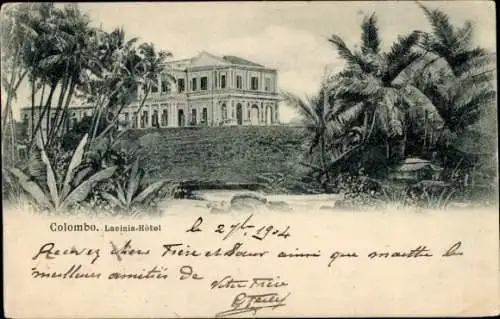 Colombo. Lavinia-Hôtel
le 27bre 1904
Recevez chers Frère et Sœur ainsi que marthe les
meilleurs amitiés de
votre Frère